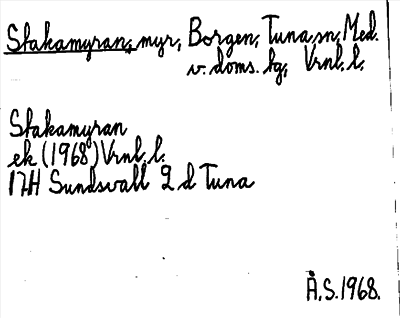 Stakamyran, myr, Borgen, Tuna sn, Med.
v. doms. hg, Vrnl. l.
Stakamyran
ek (1968) Vrnl. l.
17H Sundsvall 2 d Tuna
Å.S.1968.